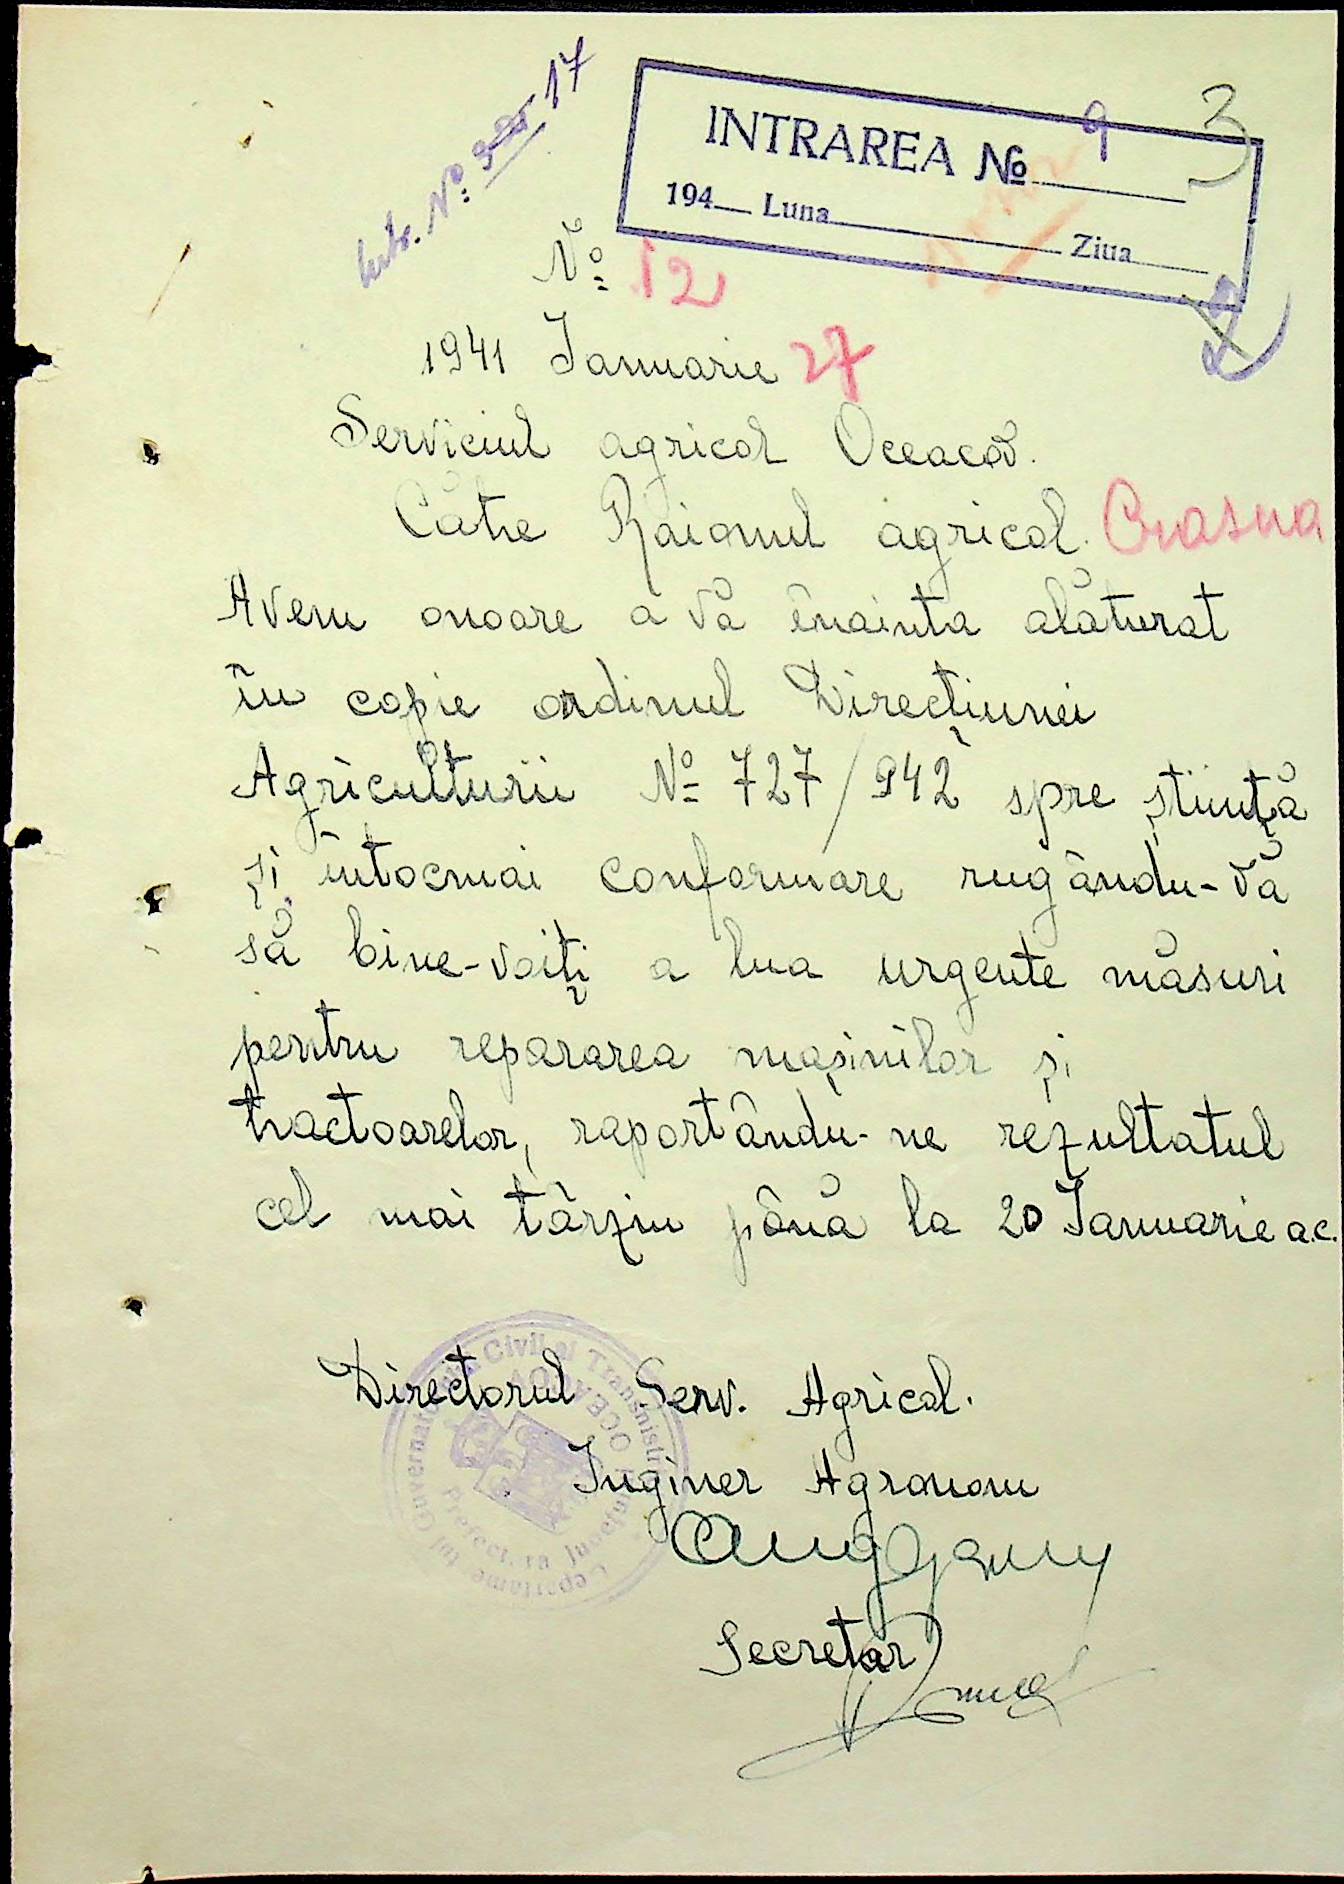 Intr. Nº 17
INTRAREA № 9
3
194 Luna Ziua
Nº 12
1941 Ianuarie 27
Serviciul agricol Oceacov.
Către Raionul agricol Crasna
Avem onoare a vă înainta alăturat
în copie ordinul Direcțiunei
Agriculturii Nº 727/942 spre știință
și întocmai conformare rugându-vă
să bine-voiți a lua urgente măsuri
pentru repararea mașinilor și
tractoarelor, raportându-ne rezultatul
cel mai târziu până la 20 Ianuarie a.c.
Directorul Serv. Agricol.
Inginer Agronom
Secretar
Guvernământul Civil al Transnistriei
Prefectura Județului
OCEACOV